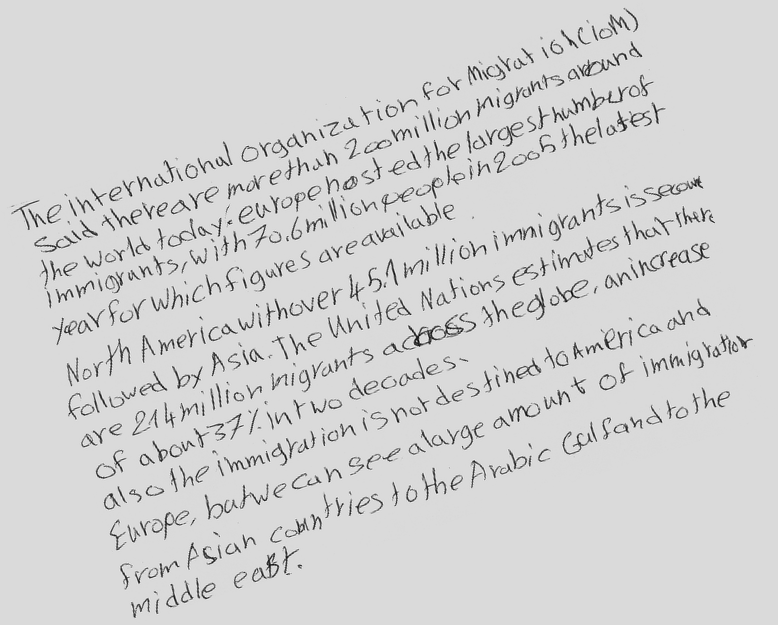 The international organization for Migration (ioM)
said there are more than 200 million migrants around
the world today. europe hosted the largest number of
immigrants, with 70.6 million people in 2005 the latest
year for which figures are available.
North America with over 45.1 million immigrants is second
followed by Asia. The United Nations estimates that there
are 214 million migrants across the globe, an increase
of about 37% in two decades.
also the immigration is not destined to America and
Europe, but we can see a large amount of immigration
from Asian countries to the Arabic Gulf and to the
middle east.